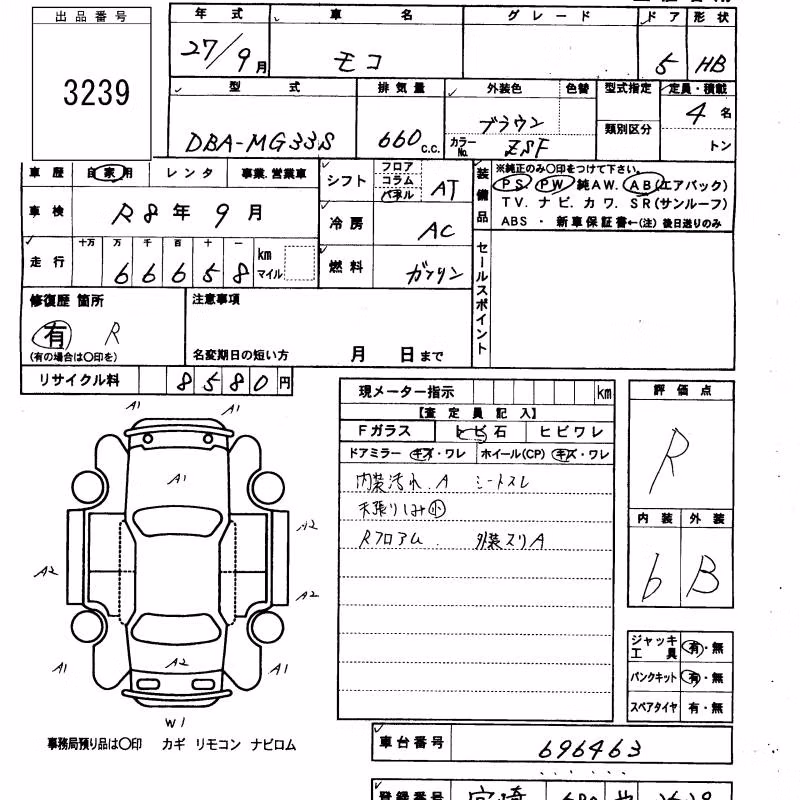 出品番号
3239
年式 車名 グレード ドア 形状
27/9月 モコ 5 HB
型式 排気量 外装色 色替 型式指定 定員・積載
DBA-MG33S 660c.c. ブラウン カラーNo. ZSF 類別区分 4名 トン
車歴 自家用 レンタ 事業.営業車
シフト フロア コラム パネル AT
装備品 ※純正のみ〇印をつけて下さい。
PS. PW 純AW. AB(エアバック)
TV. ナビ. カワ. SR(サンルーフ)
ABS ・ 新車保証書←(注) 後日送りのみ
車検 R8年9月
冷房 AC
走行 十万 万 千 百 十 一 km マイル
66658
燃料 ガソリン
セールスポイント
修復歴 箇所
有 R
(有の場合は〇印を)
注意事項
名変期日の短い方 月 日まで
リサイクル料 8580円
現メーター指示 km
【査定員記入】
Fガラス トビ石 ヒビワレ
ドアミラー キズ・ワレ ホイール(CP) キズ・ワレ
内装汚れ A シートスレ
天張りしみ小
Rフロアム 外装スリA
評価点
R
内装 外装
b B
A1 A1
A1
A2
A2
A2
A1 A2 A1
W1
ジャッキ工具 有・無
パンクキット 有・無
スペアタイヤ 有・無
事務局預り品は〇印 カギ リモコン ナビロム
車台番号 696463
登録番号 宮崎